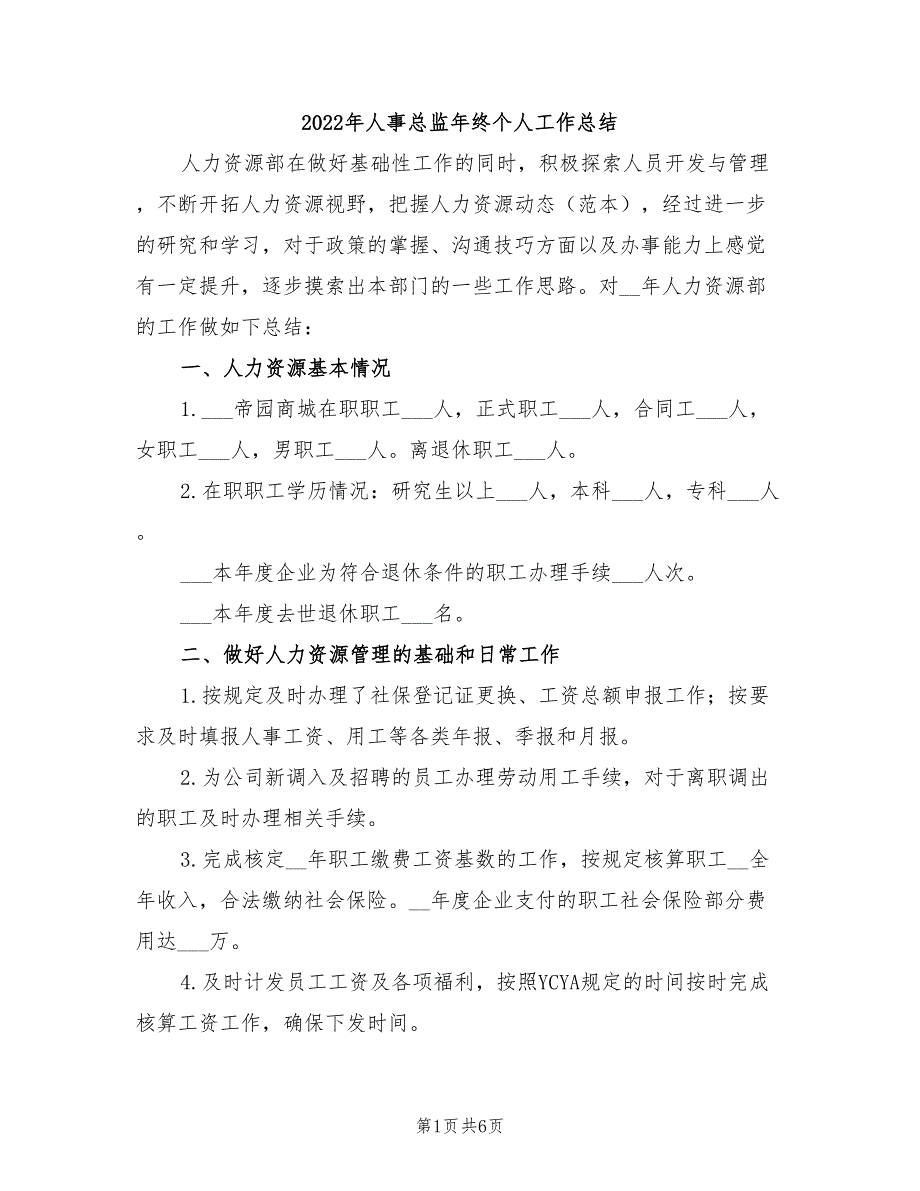 2022年人事总监年终个人工作总结
人力资源部在做好基础性工作的同时，积极探索人员开发与管理
，不断开拓人力资源视野，把握人力资源动态（范本），经过进一步
的研究和学习，对于政策的掌握、沟通技巧方面以及办事能力上感觉
有一定提升，逐步摸索出本部门的一些工作思路。对__年人力资源部
的工作做如下总结：
一、人力资源基本情况
1.___帝园商城在职职工___人，正式职工___人，合同工___人，
女职工___人，男职工___人。离退休职工___人。
2.在职职工学历情况：研究生以上___人，本科___人，专科___人
。
___本年度企业为符合退休条件的职工办理手续___人次。
___本年度去世退休职工___名。
二、做好人力资源管理的基础和日常工作
1.按规定及时办理了社保登记证更换、工资总额申报工作；按要
求及时填报人事工资、用工等各类年报、季报和月报。
2.为公司新调入及招聘的员工办理劳动用工手续，对于离职调出
的职工及时办理相关手续。
3.完成核定__年职工缴费工资基数的工作，按规定核算职工__全
年收入，合法缴纳社会保险。__年度企业支付的职工社会保险部分费
用达___万。
4.及时计发员工工资及各项福利，按照YCYA规定的时间按时完成
核算工资工作，确保下发时间。
第1页 共6页